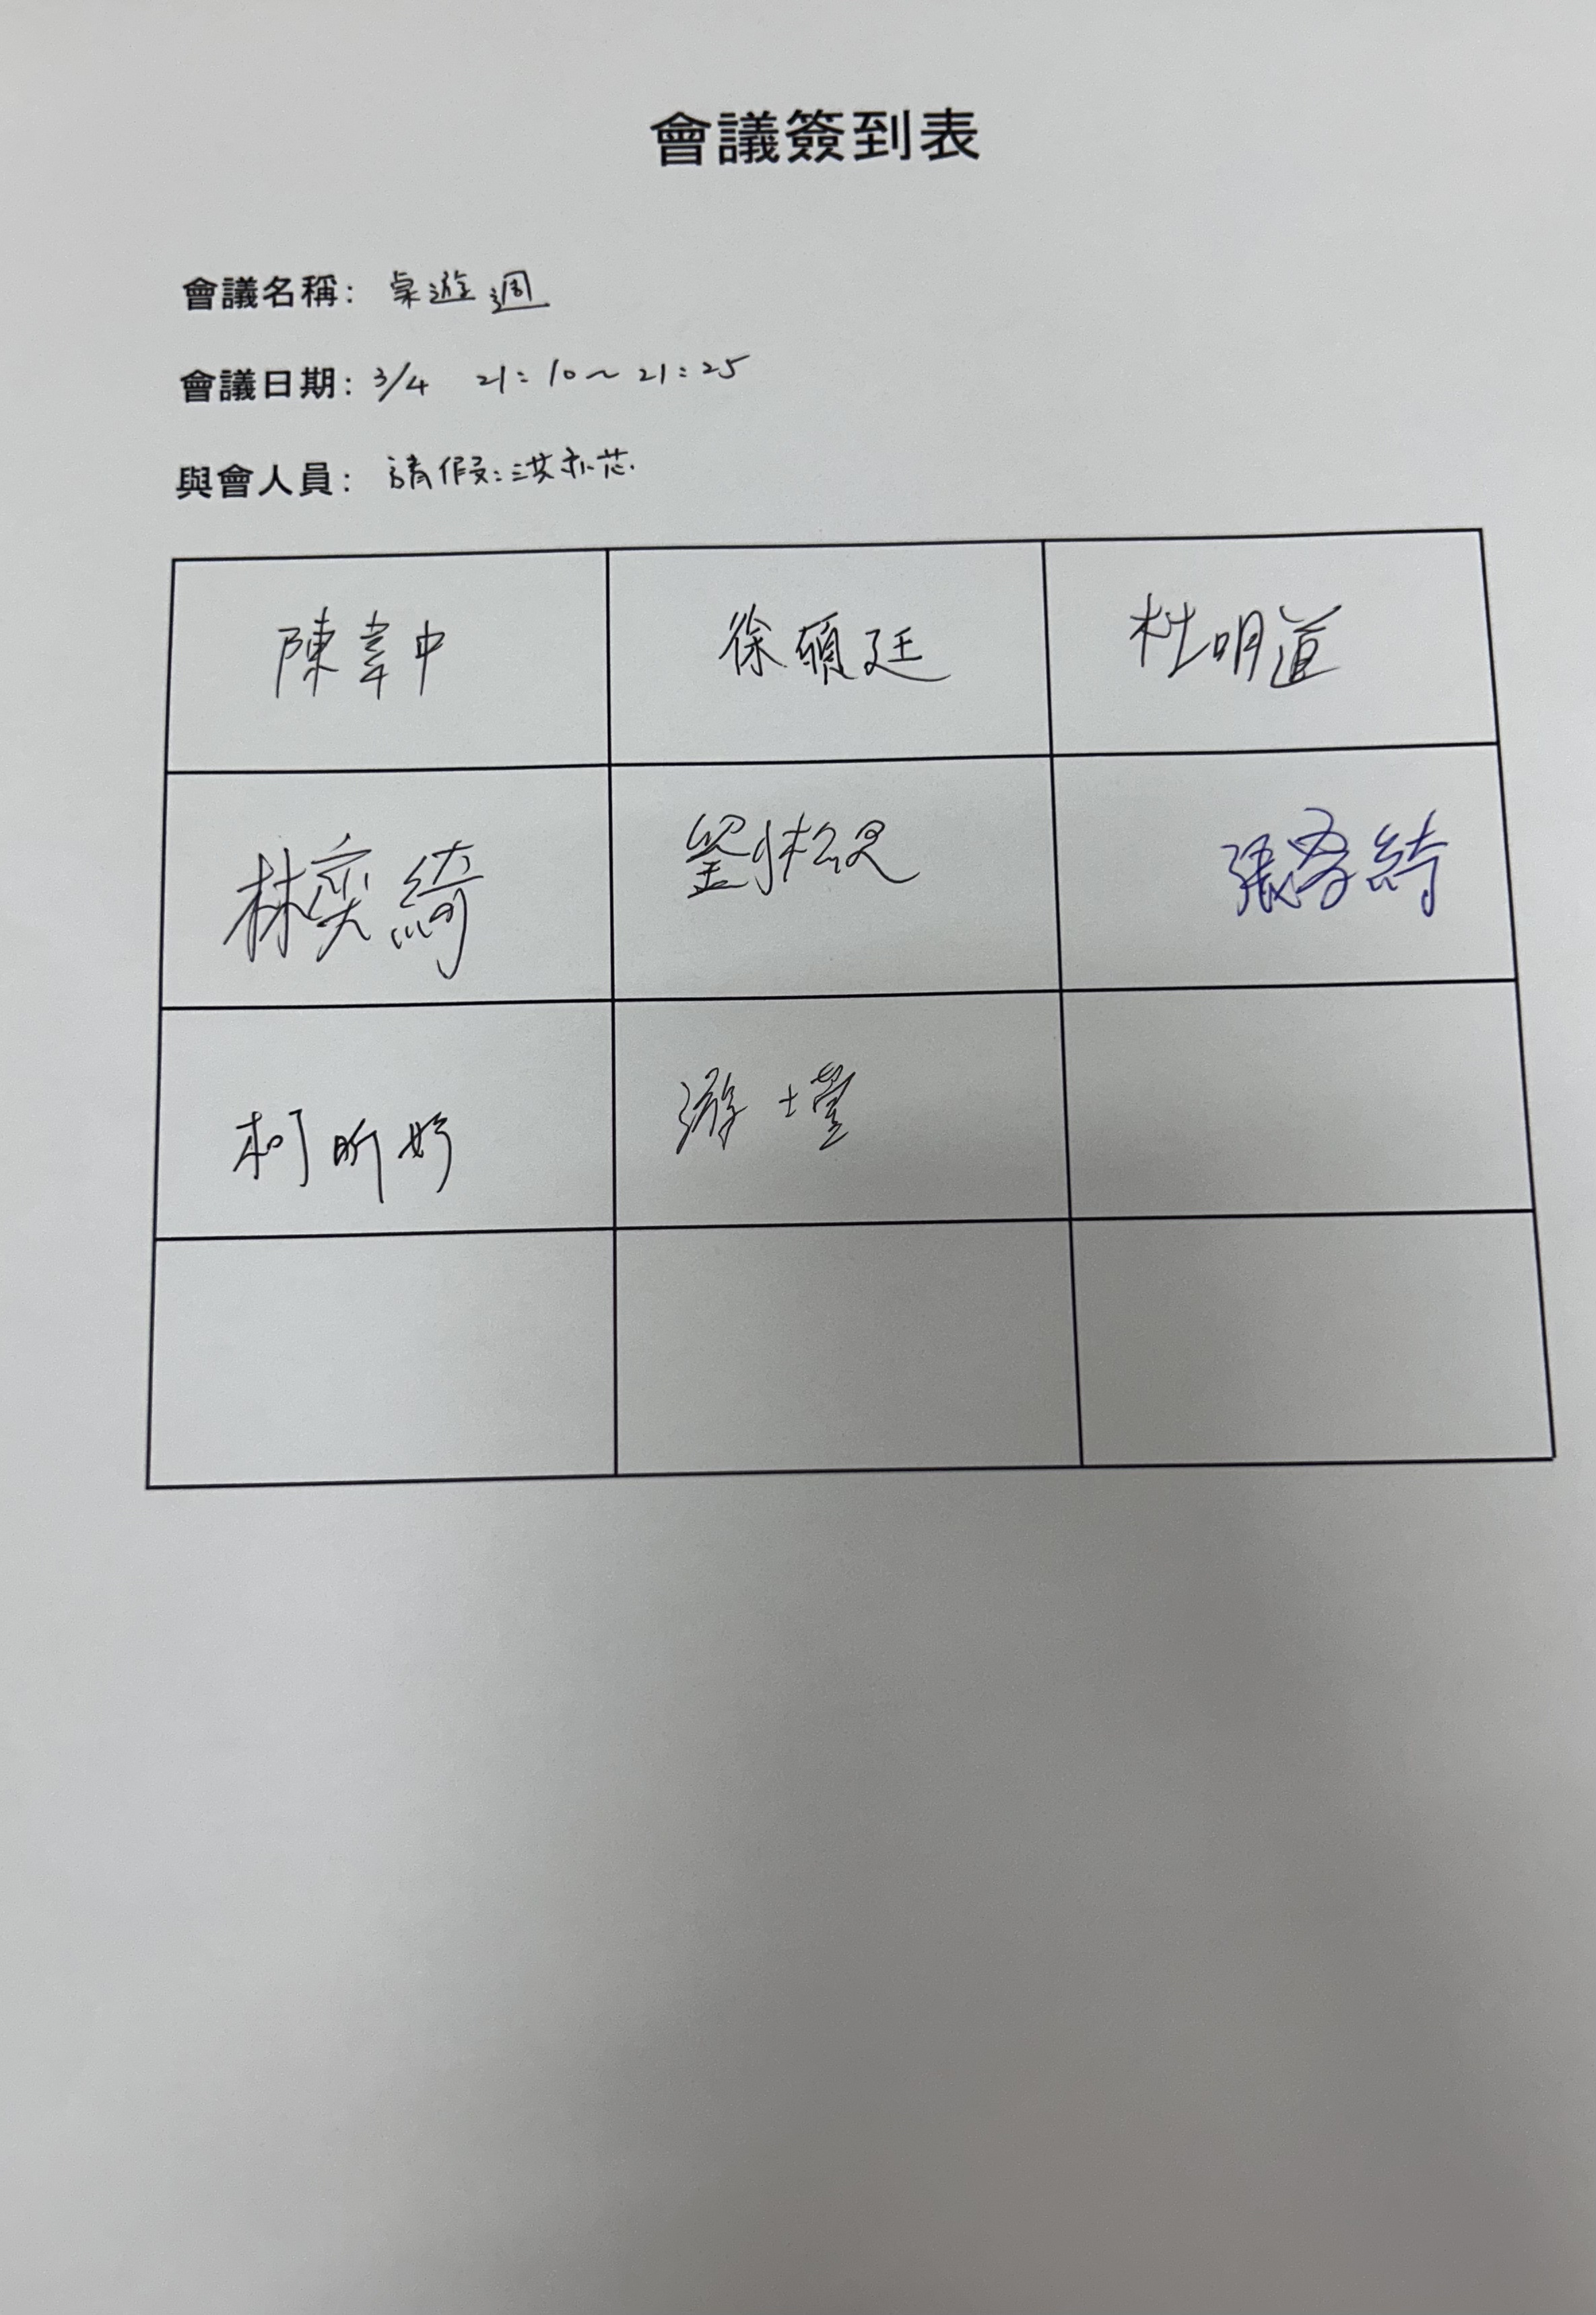 會議簽到表
會議名稱: 桌遊週
會議日期: 3/4 21:10~21:25
與會人員: 請假:洪亦芯
陳韋中 徐碩廷 杜明道
林奕綺 劉 張 綺
柯昕妤 游